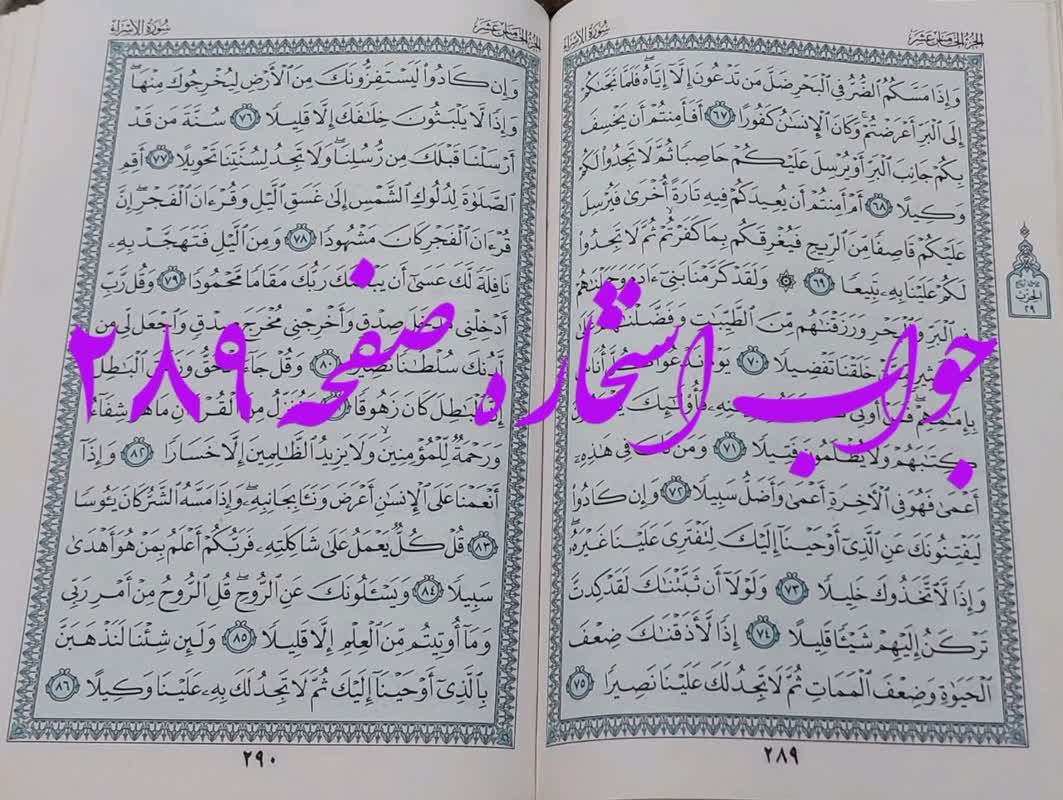 الجزء الخامس عشر
سورة الإسراء
وَإِذَا مَسَّكُمُ ٱلضُّرُّ فِى ٱلْبَحْرِ ضَلَّ مَن تَدْعُونَ إِلَّآ إِيَّاهُ ۖ فَلَمَّا نَجَّىٰكُمْ
إِلَى ٱلْبَرِّ أَعْرَضْتُمْ ۚ وَكَانَ ٱلْإِنسَٰنُ كَفُورًا ٦٧ أَفَأَمِنتُمْ أَن يَخْسِفَ
بِكُمْ جَانِبَ ٱلْبَرِّ أَوْ يُرْسِلَ عَلَيْكُمْ حَاصِبًا ثُمَّ لَا تَجِدُوا۟ لَكُمْ
وَكِيلًا ٦٨ أَمْ أَمِنتُمْ أَن يُعِيدَكُمْ فِيهِ تَارَةً أُخْرَىٰ فَيُرْسِلَ
عَلَيْكُمْ قَاصِفًا مِّنَ ٱلرِّيحِ فَيُغْرِقَكُم بِمَا كَفَرْتُمْ ۙ ثُمَّ لَا تَجِدُوا۟
لَكُمْ عَلَيْنَا بِهِۦ تَبِيعًا ٦٩ ۞ وَلَقَدْ كَرَّمْنَا بَنِىٓ ءَادَمَ وَحَمَلْنَٰهُمْ
فِى ٱلْبَرِّ وَٱلْبَحْرِ وَرَزَقْنَٰهُم مِّنَ ٱلطَّيِّبَٰتِ وَفَضَّلْنَٰهُمْ
خَلَقْنَا تَفْضِيلًا ٧٠ يَوْمَ نَدْعُوا۟ كُلَّ أُنَاسٍۭ
بِإِمَٰمِهِمْ ۖ فَمَنْ أُوتِىَ فَأُو۟لَٰٓئِكَ
كِتَٰبَهُمْ وَلَا يُظْلَمُونَ فَتِيلًا ٧١ وَمَن كَانَ فِى هَٰذِهِۦٓ
أَعْمَىٰ فَهُوَ فِى ٱلْءَاخِرَةِ أَعْمَىٰ وَأَضَلُّ سَبِيلًا ٧٢ وَإِن كَادُوا۟
لَيَفْتِنُونَكَ عَنِ ٱلَّذِىٓ أَوْحَيْنَآ إِلَيْكَ لِتَفْتَرِىَ عَلَيْنَا غَيْرَهُۥ ۖ
وَإِذًا لَّٱتَّخَذُوكَ خَلِيلًا ٧٣ وَلَوْلَآ أَن ثَبَّتْنَٰكَ لَقَدْ كِدتَّ
تَرْكَنُ إِلَيْهِمْ شَيْـًٔا قَلِيلًا ٧٤ إِذًا لَّأَذَقْنَٰكَ ضِعْفَ
ٱلْحَيَوٰةِ وَضِعْفَ ٱلْمَمَاتِ ثُمَّ لَا تَجِدُ لَكَ عَلَيْنَا نَصِيرًا ٧٥
٢٨٩
الحزب
٢٩
الجزء الخامس عشر
سورة الإسراء
وَإِن كَادُوا۟ لَيَسْتَفِزُّونَكَ مِنَ ٱلْأَرْضِ لِيُخْرِجُوكَ مِنْهَا ۖ
وَإِذًا لَّا يَلْبَثُونَ خِلَٰفَكَ إِلَّا قَلِيلًا ٧٦ سُنَّةَ مَن قَدْ
أَرْسَلْنَا قَبْلَكَ مِن رُّسُلِنَا ۖ وَلَا تَجِدُ لِسُنَّتِنَا تَحْوِيلًا ٧٧ أَقِمِ
ٱلصَّلَوٰةَ لِدُلُوكِ ٱلشَّمْسِ إِلَىٰ غَسَقِ ٱلَّيْلِ وَقُرْءَانَ ٱلْفَجْرِ ۖ إِنَّ
قُرْءَانَ ٱلْفَجْرِ كَانَ مَشْهُودًا ٧٨ وَمِنَ ٱلَّيْلِ فَتَهَجَّدْ بِهِۦ
نَافِلَةً لَّكَ عَسَىٰٓ أَن يَبْعَثَكَ رَبُّكَ مَقَامًا مَّحْمُودًا ٧٩ وَقُل رَّبِّ
أَدْخِلْنِى مُدْخَلَ صِدْقٍ وَأَخْرِجْنِى مُخْرَجَ صِدْقٍ وَٱجْعَل لِّى مِن
لَّدُنكَ سُلْطَٰنًا نَّصِيرًا ٨٠ وَقُلْ جَآءَ ٱلْحَقُّ وَزَهَقَ ٱلْبَٰطِلُ
إِنَّ ٱلْبَٰطِلَ كَانَ زَهُوقًا وَنُنَزِّلُ مِنَ ٱلْقُرْءَانِ مَا هُوَ شِفَآءٌ
وَرَحْمَةٌ لِّلْمُؤْمِنِينَ ۙ وَلَا يَزِيدُ ٱلظَّٰلِمِينَ إِلَّا خَسَارًا ٨٢ وَإِذَآ
أَنْعَمْنَا عَلَى ٱلْإِنسَٰنِ أَعْرَضَ وَنَـَٔا بِجَانِبِهِۦ ۖ وَإِذَا مَسَّهُ ٱلشَّرُّ كَانَ يَـُٔوسًا
٨٣ قُلْ كُلٌّ يَعْمَلُ عَلَىٰ شَاكِلَتِهِۦ فَرَبُّكُمْ أَعْلَمُ بِمَنْ هُوَ أَهْدَىٰ
سَبِيلًا ٨٤ وَيَسْـَٔلُونَكَ عَنِ ٱلرُّوحِ ۖ قُلِ ٱلرُّوحُ مِنْ أَمْرِ رَبِّى
وَمَآ أُوتِيتُم مِّنَ ٱلْعِلْمِ إِلَّا قَلِيلًا ٨٥ وَلَئِن شِئْنَا لَنَذْهَبَنَّ
بِٱلَّذِىٓ أَوْحَيْنَآ إِلَيْكَ ثُمَّ لَا تَجِدُ لَكَ بِهِۦ عَلَيْنَا وَكِيلًا ٨٦
٢٩٠
جواب استخاره صفحه ۲۸۹